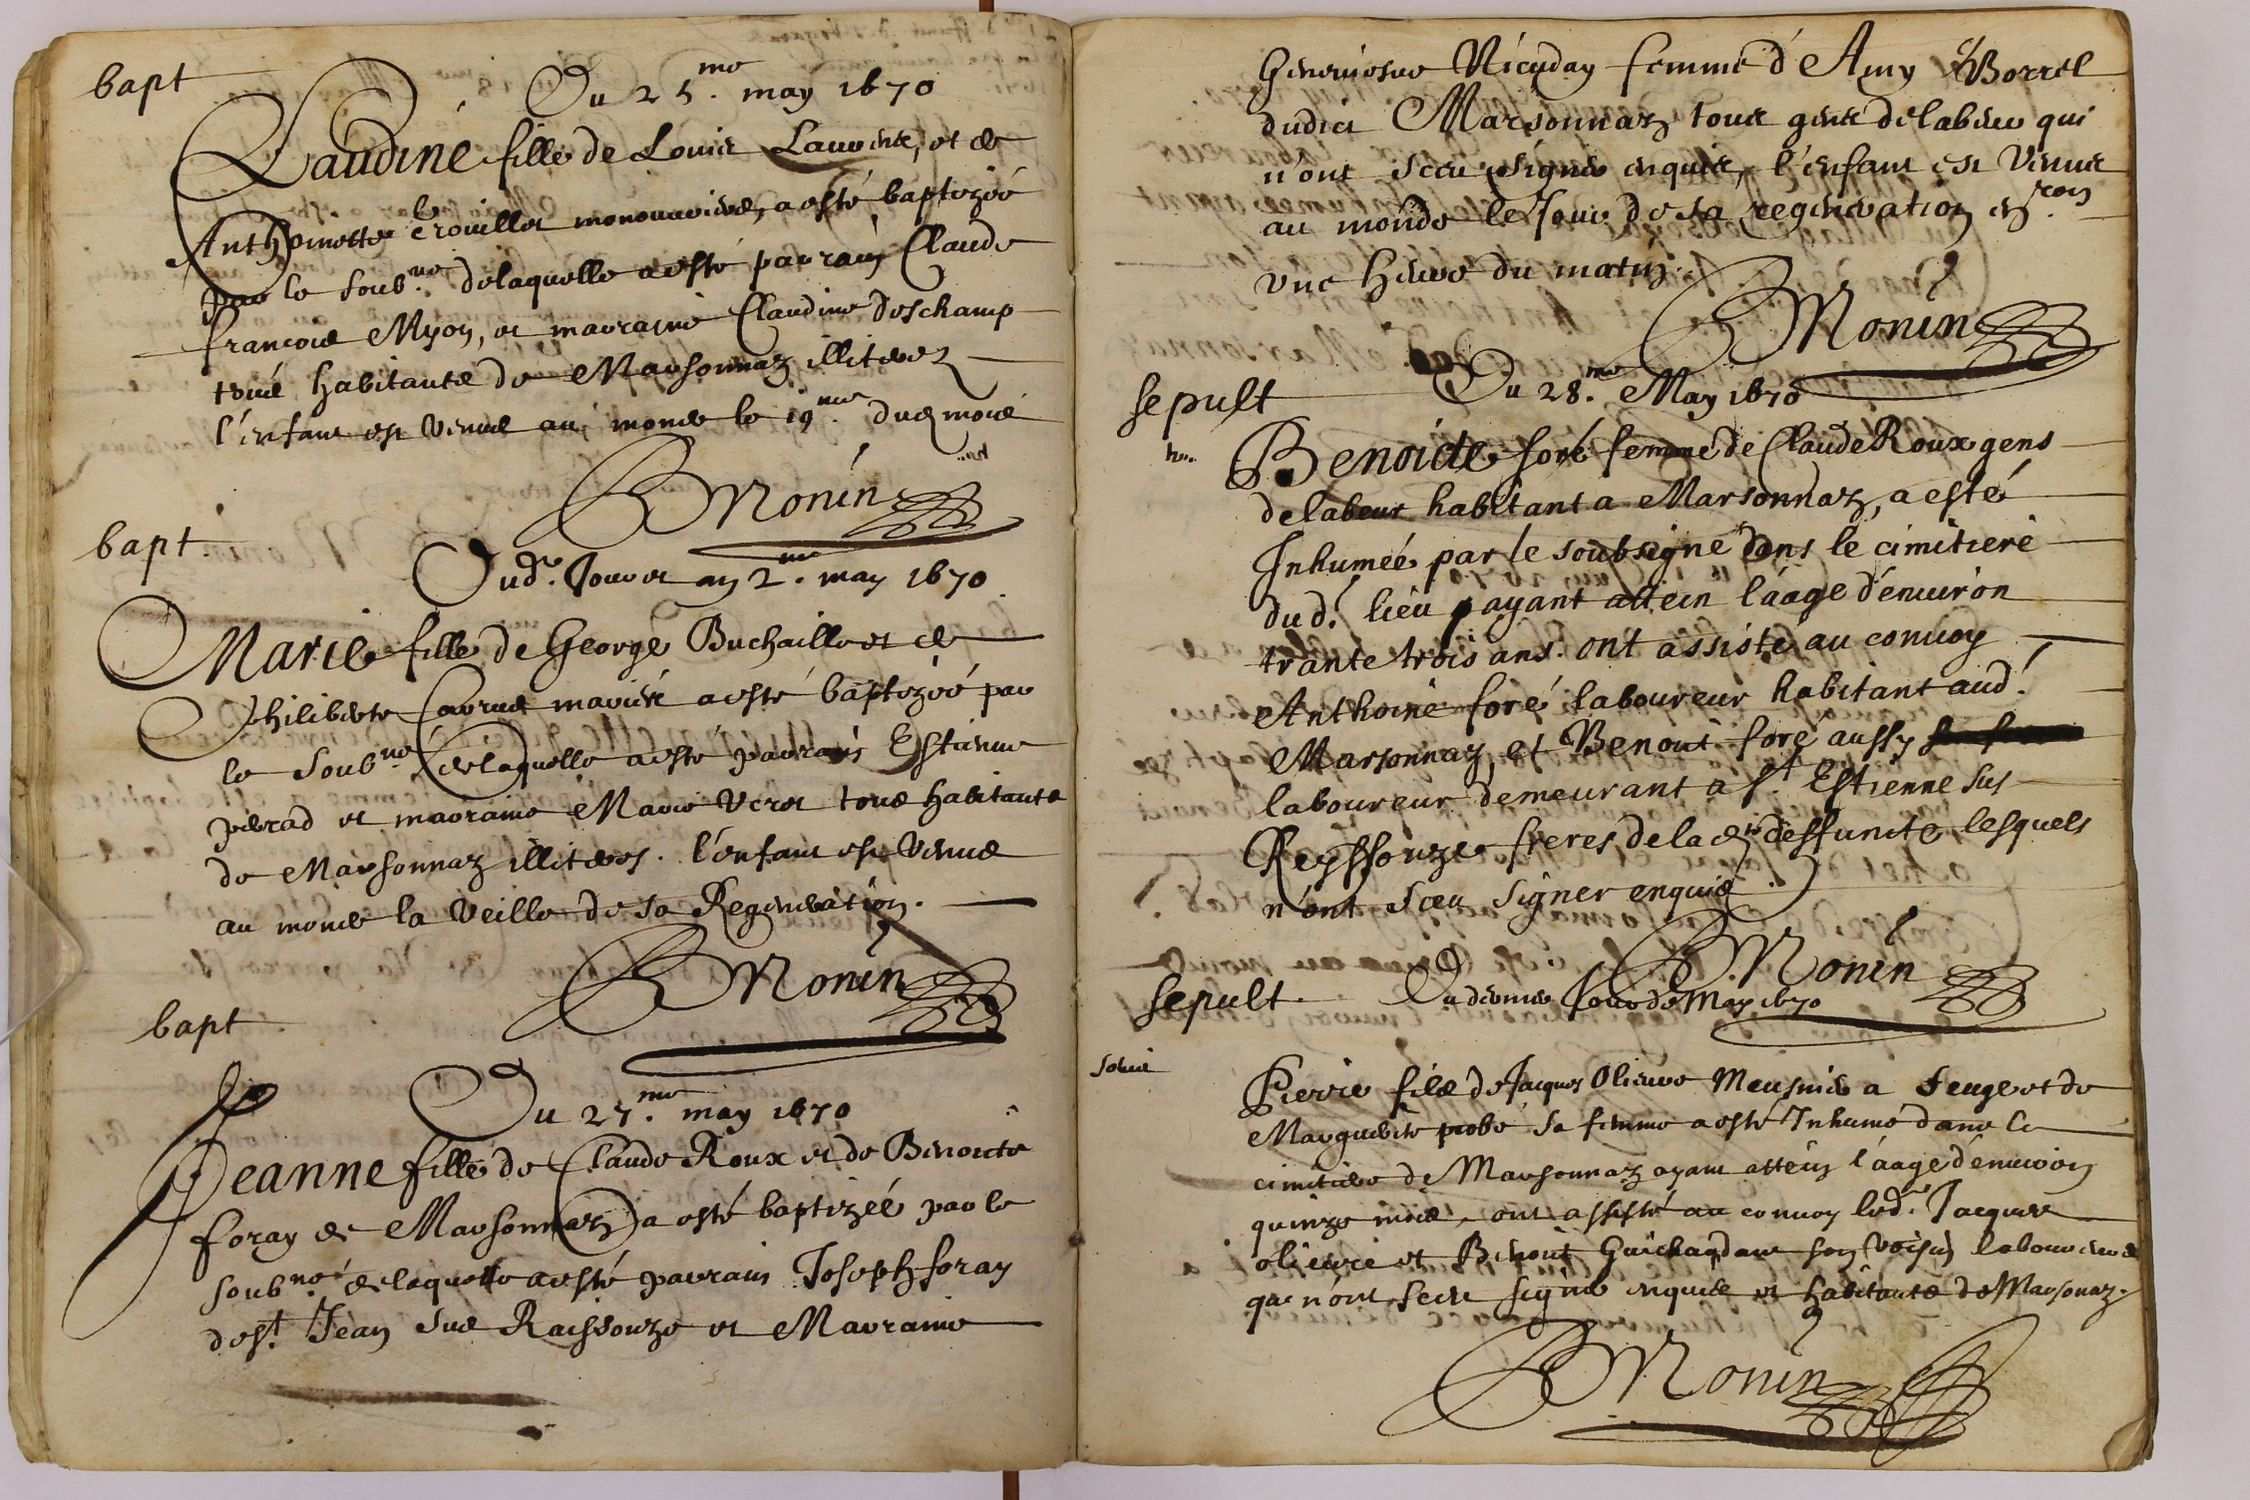 bapt
Du 25.me may 1670
Laudine fille de Louis Laurent, et de
Anthoinette Crouillot monouvriers, a esté baptizéé
par le soub.né delaquelle a esté parrain Claude
francois Myon, et marraine Claudine deschamp
tous habitants de Marsonnaz illiterez
l'enfant est venue au monde le 19.me dud mois
BMonin
bapt
Dud. Jour et an 2.me may 1670
Marie fille de George Buchaille et de
Philiberte mariés a esté baptizéé par
le soub.né delaquelle a esté parrain Estienne
perrad et marraine Marie Veret tous habitants
de Marsonnaz illiteres. l'enfant est venue
au monde la veille de sa Regeneration.
BMonin
bapt
Du 27.me may 1670
Jeanne fille de Claude Roux et de Benoiste
foray de Marsonnaz a esté baptizéé par le
soub.né delaquelle a esté parrain Joseph foray
de st Jean sus Raissouze et Marraine
femme d'Amy Borrel
dudict Marsonnaz tous gens delabeur qui
n'ont sceu signer enquis, l'enfant est venue
au monde le Jour de sa regeneration environ
une heure du matin.
BMonin
sepult
Du 28.me May 1670
Benoicte foré femme de Claude Roux gens
delabeur habitant a Marsonnaz, a esté
Inhumeé par le soubsigné dans le cimitiere
dud.t lieu ayant attein l'áage d'enuiron
trante trois ans. ont assisté au conuoy
Anthoine foré laboureur habitant aud.t
Marsonnaz, et Benoit foré aussy
laboureur demeurant a st. Estienne sus
Reyssouze freres de la dte deffuncte, lesquels
n'ont sceu signer enquis.
B.Monin
sepult
Du dernier Jour de May 1670
Pierre fils de Jacques Olieure Meusnier a feuge et de
Marguerite probé sa femme a esté Inhumé dans le
cimitiere de Marsonnaz ayant attein l'áage d'enuiron
quinze mois, ont assisté au conuoy led. Jacques
olieure et Benoit Guichardan son voisin laboureurs
qui n'ont sceu signer enquis et habitants de Marsonaz.
BMonin